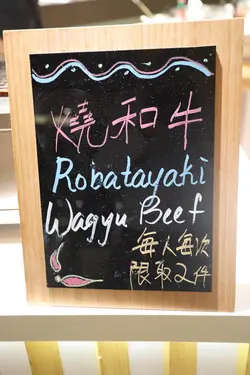 燒和牛
Robatayaki
Wagyu Beef
每人每次
限取2件